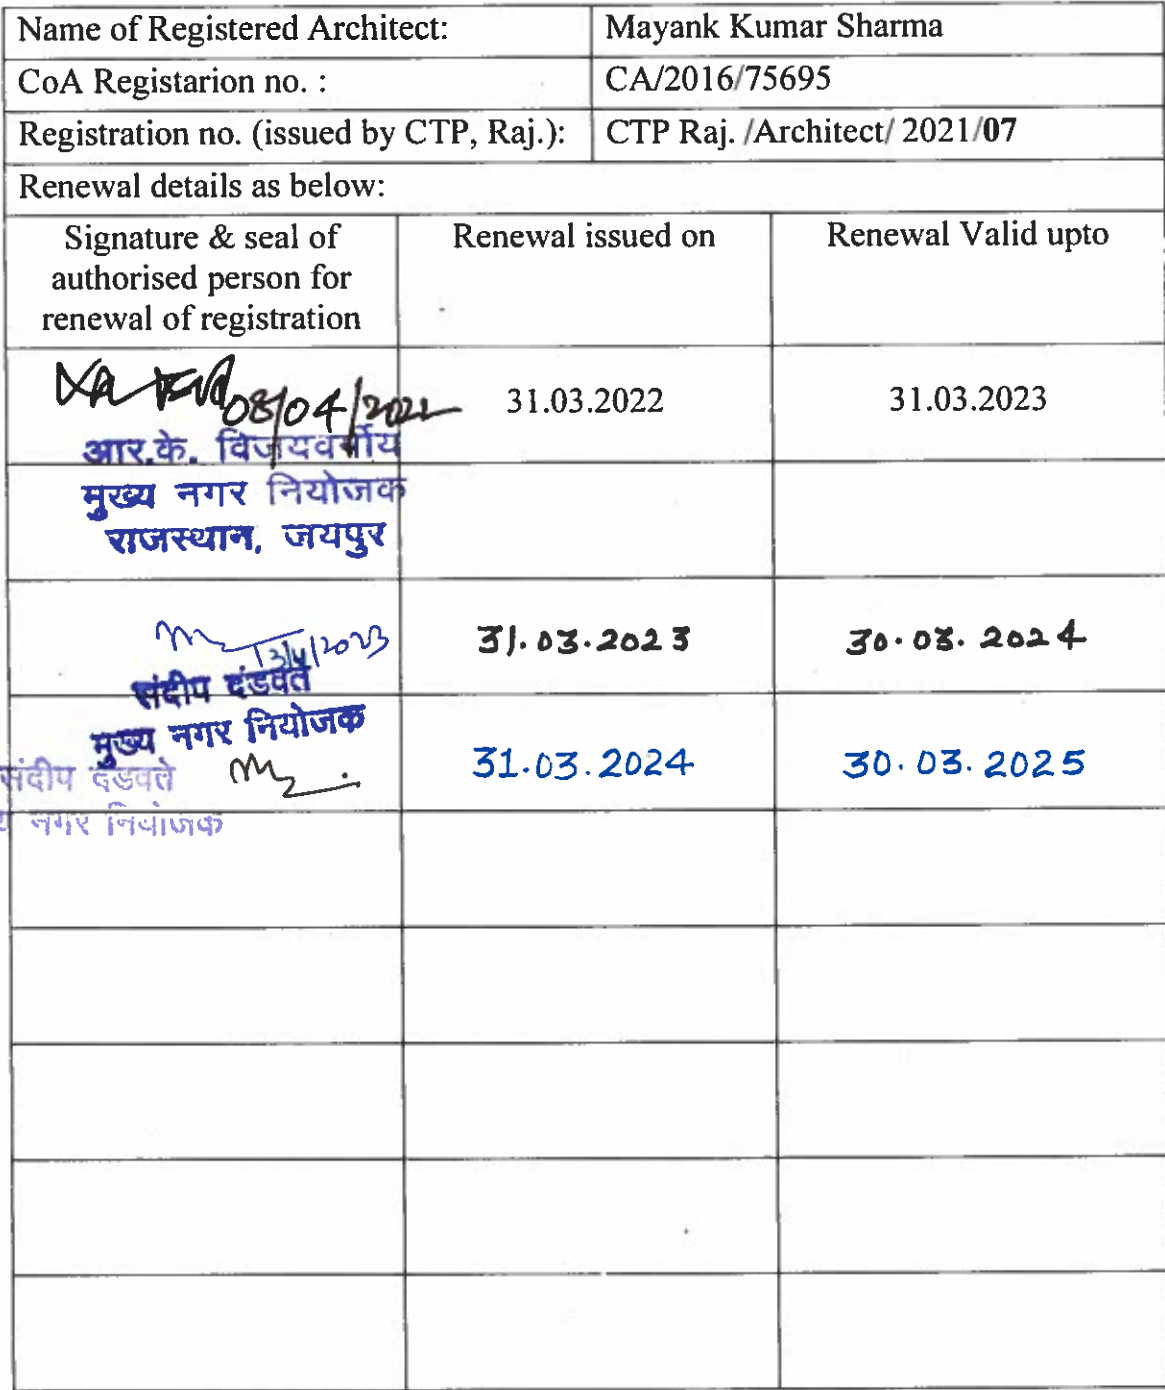 Name of Registered Architect: Mayank Kumar Sharma
CoA Registarion no. : CA/2016/75695
Registration no. (issued by CTP, Raj.): CTP Raj. /Architect/ 2021/07
Renewal details as below:
Signature & seal of authorised person for renewal of registration
Renewal issued on
Renewal Valid upto
08/04/2022
31.03.2022
31.03.2023
आर.के. विजयवर्गीय
मुख्य नगर नियोजक
राजस्थान, जयपुर
13/4/2023
31.03.2023
30.03.2024
संदीप दंडवते
मुख्य नगर नियोजक
31.03.2024
30.03.2025
संदीप दंडवते
नगर नियोजक